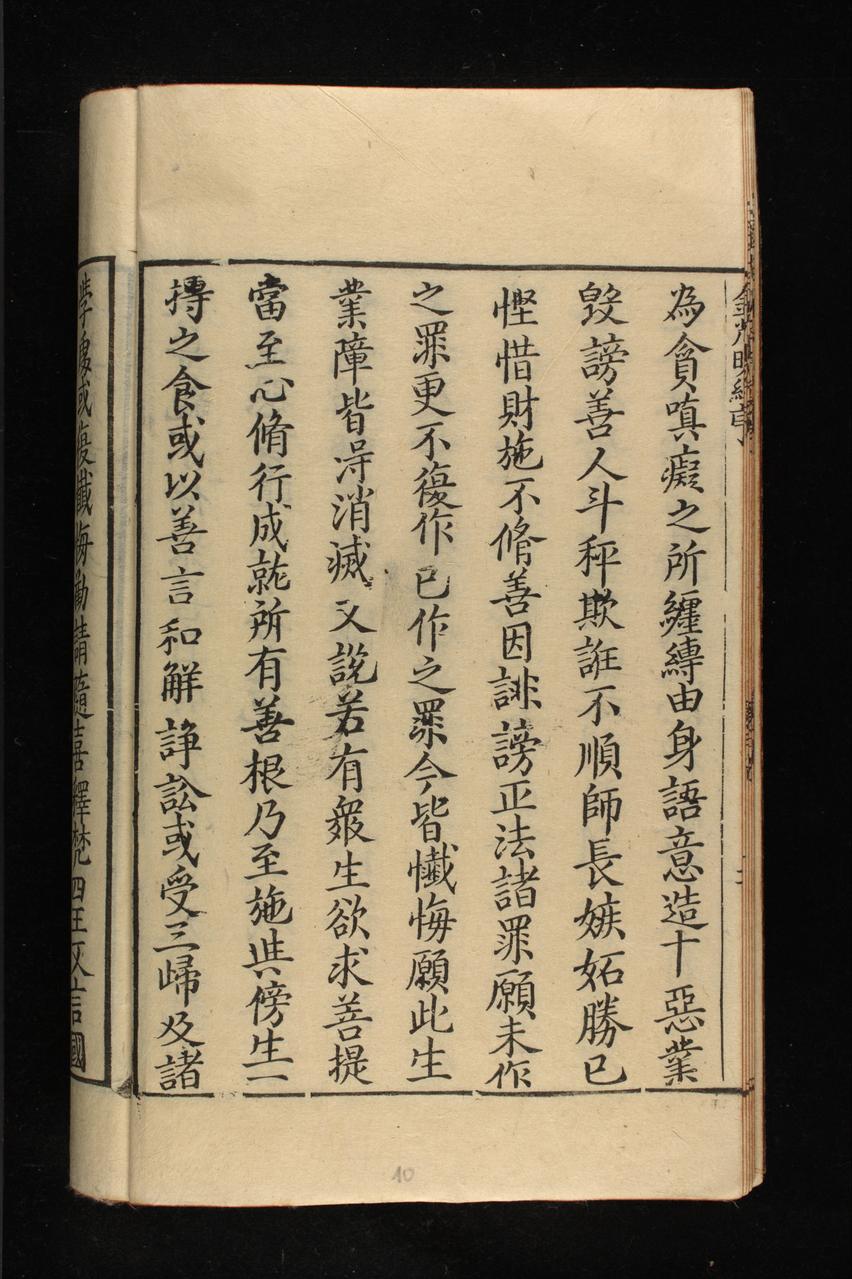 為貪嗔癡之所纏縛由身語意造十惡業
毀謗善人斗秤欺誑不順師長嫉妬勝己
慳惜財施不脩善因誹謗正法諸罪願未作
之罪更不復作已作之罪今皆懺悔願此生
業障皆㝵消滅又説若有衆生欲求菩提
當至心脩行成就所有善根乃至施與傍生一
摶之食或以善言和解諍訟或受三歸及諸
學處或復懺悔勸請隨喜釋梵四王
10